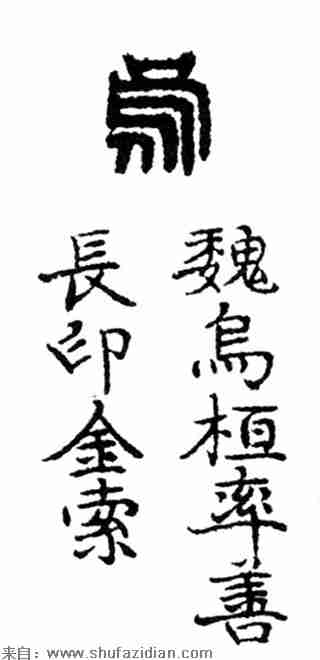 烏
魏烏桓率善
長印金索
来自：www.shufazidian.com